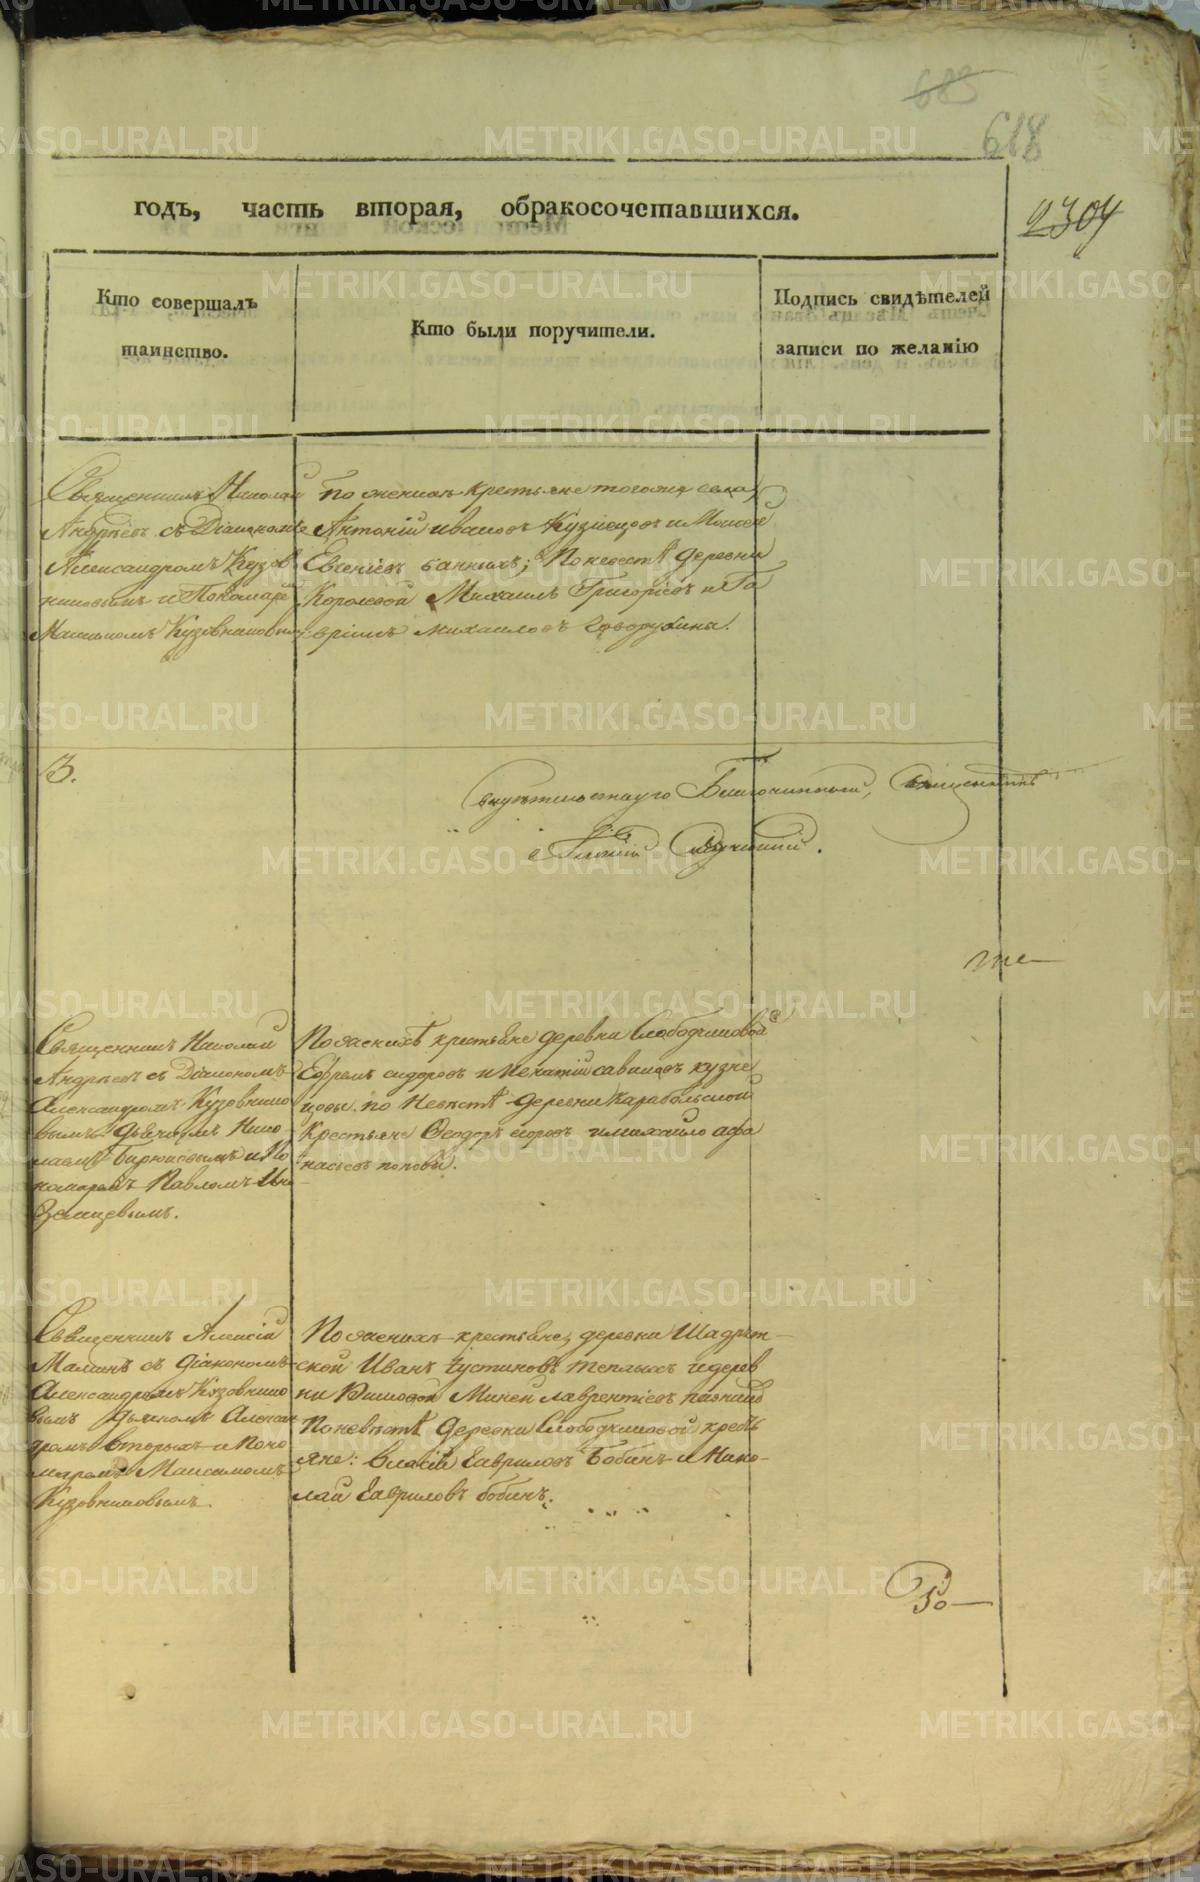 618
годъ, часть вторая, обракосочетавшихся.
2304
Кто совершалъ
таинство.
Кто были поручители.
Подпись свидѣтелей
записи по желанію
Священникъ Николай
Андрѣевъ съ Діакономъ
Александромъ Кузов
никовымъ и Пономаре
Максимомъ Кузовниковым
по женихѣ крестьяне тогоже села
Антоній ивановъ Кузнецовъ и Моисей
Евгеніевъ банныхъ; По невестѣ деревни
Королевой Михаилъ Григорьевъ и Га
вріилъ михаиловъ Говорухины.
3.
Благочинный, Священникъ
те
Священникъ Николай
Андрѣевъ съ Діакономъ
Александромъ Кузовнико
вымъ Дьячкомъ Нико
лаемъ Бирюковымъ и По
номаремъ Павломъ Ино
земцевымъ.
По женихѣ крестьяне деревни Слободчиковой
Ефремъ сидоровъ и Игнатій савиновъ кузне
цовы. по Невѣстѣ деревни Карабольской
Крестьяне Ѳеодоръ егоровъ и михайло афа
насьевъ поповы.
Священникъ Алексій
Малинъ съ діакономъ
Александромъ Кузовнико
вымъ дьячкомъ Алексан
дромъ Вторыхъ и Поно
маремъ Максимомъ
Кузовниковымъ.
По женихѣ крестьяне, деревни Шадрит-
ской Иванъ Іустиновъ теплыхъ и дерев
ни Миней лаврентіевъ
По невѣстѣ деревни Слободчиковой кресть
яне: Власій Гавриловъ Бобинъ и Нико-
лай Гавриловъ бобинъ.